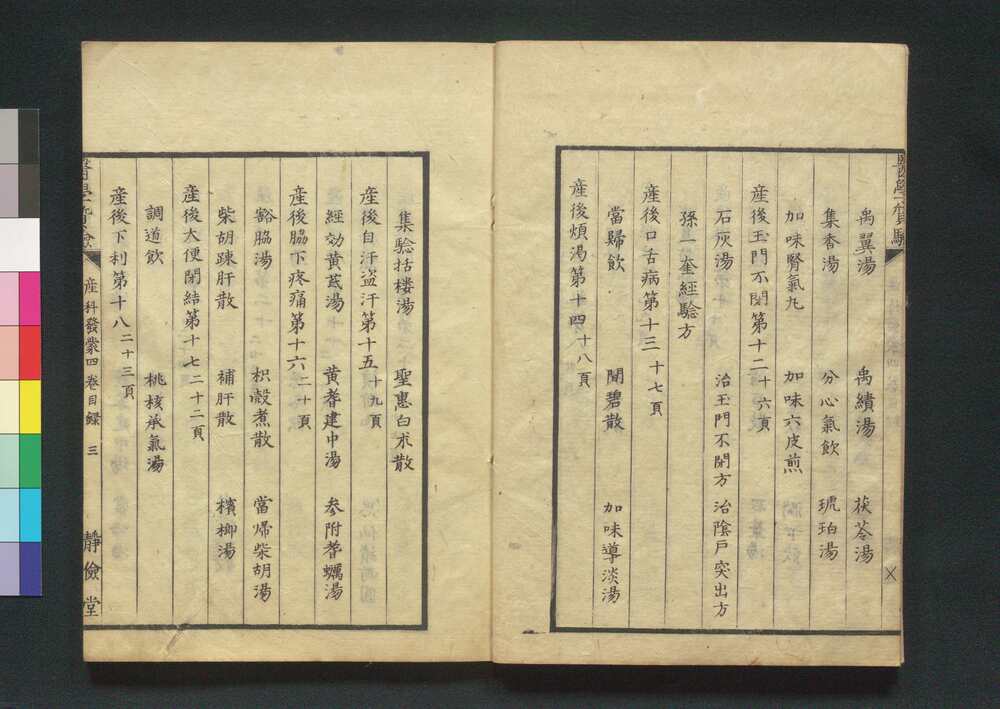 禹翼湯　禹績湯　茯苓湯
集香湯　分心氣飲　琥珀湯
加味腎氣丸　加味六皮煎
産後玉門不閉第十二　十六頁
石灰湯　治玉門不閉方　治陰戸突出方
孫一奎經驗方
産後口舌病第十三　十七頁
當歸飲　聞碧散　加味導淡湯
産後煩渇第十四　十八頁
集驗括楼湯　聖惠白朮散
産後自汗盗汗第十五　十九頁
經効黄茋湯　黄耆建中湯　参附耆蠣湯
産後脇下疼痛第十六　二十頁
豁脇湯　枳殻煮散　當帰柴胡湯
柴胡踈肝散　補肝散　檳榔湯
産後大便閉結第十七　二十二頁
調道飲　桃核承氣湯
産後下利第十八　二十三頁
産科發蒙四　巻目録　三　静儉堂